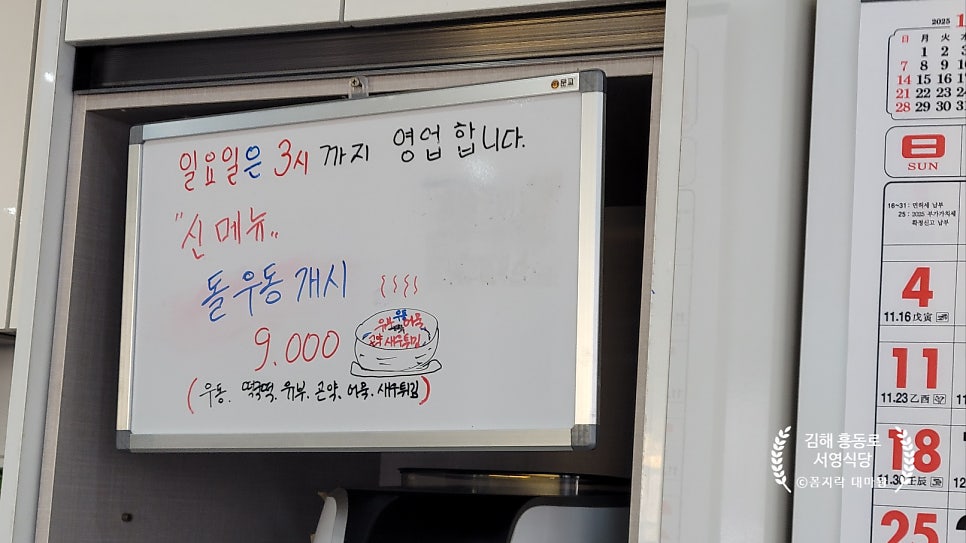 문교
일요일은 3시 까지 영업 합니다.
"신 메뉴"
돌우동 개시
9.000
유부 우동 어묵
곤약 새우튀김
(우동. 떡국떡. 유부. 곤약. 어묵. 새우튀김)
2025
日 月 火
1 2 3
7 8 9 10
14 15 16 17
21 22 23 24
28 29 30 31
日
SUN
16~31 : 면허세 납부
25 : 2025 부가가치세
확정신고 납부
4
11.16 戊寅
11
11.23 乙酉
18
11.30 壬辰
25
김해 흥동로
서영식당
©꼼지락 대마왕